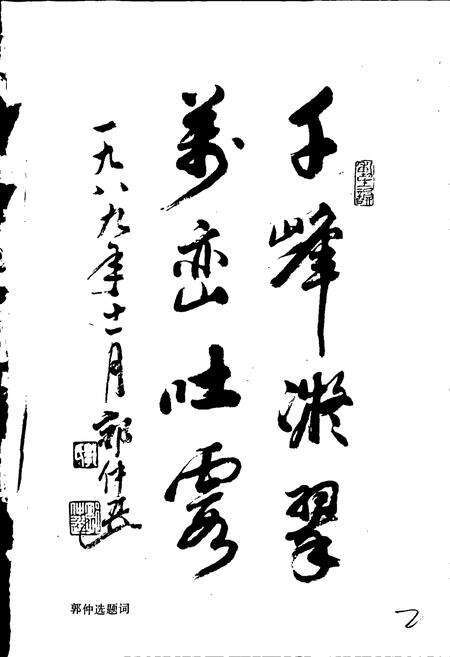 千峰凝翠
萬峦吐霞
一九八九年十一月 郭仲选
郭仲选题词